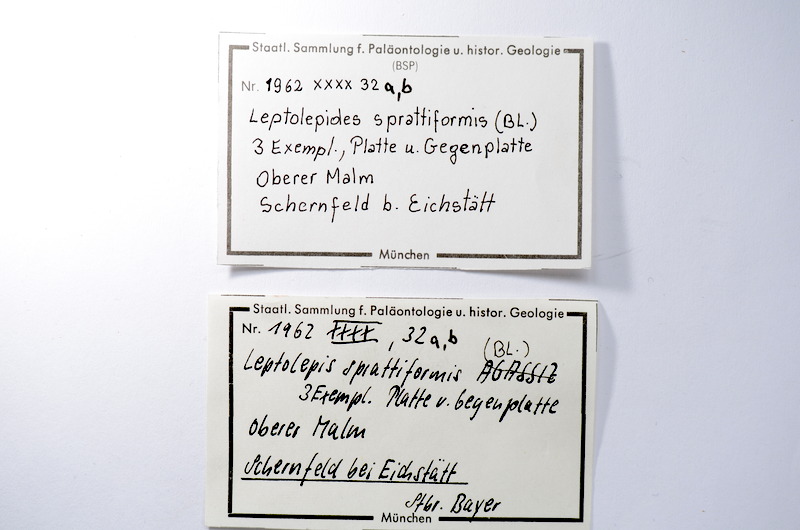 Staatl. Sammlung f. Paläontologie u. histor. Geologie
(BSP)
Nr. 1962 xxxx 32 a,b
Leptolepides sprattiformis (BL.)
3 Exempl., Platte u. Gegenplatte
Oberer Malm
Schernfeld b. Eichstätt
München
Staatl. Sammlung f. Paläontologie u. histor. Geologie
Nr. 1962 XXXX, 32 a,b
(BL.)
Leptolepis sprattiformis AGASSIZ
3 Exempl. Platte u. Gegenplatte
Oberer Malm
Schernfeld bei Eichstätt
Stbr. Bayer
München